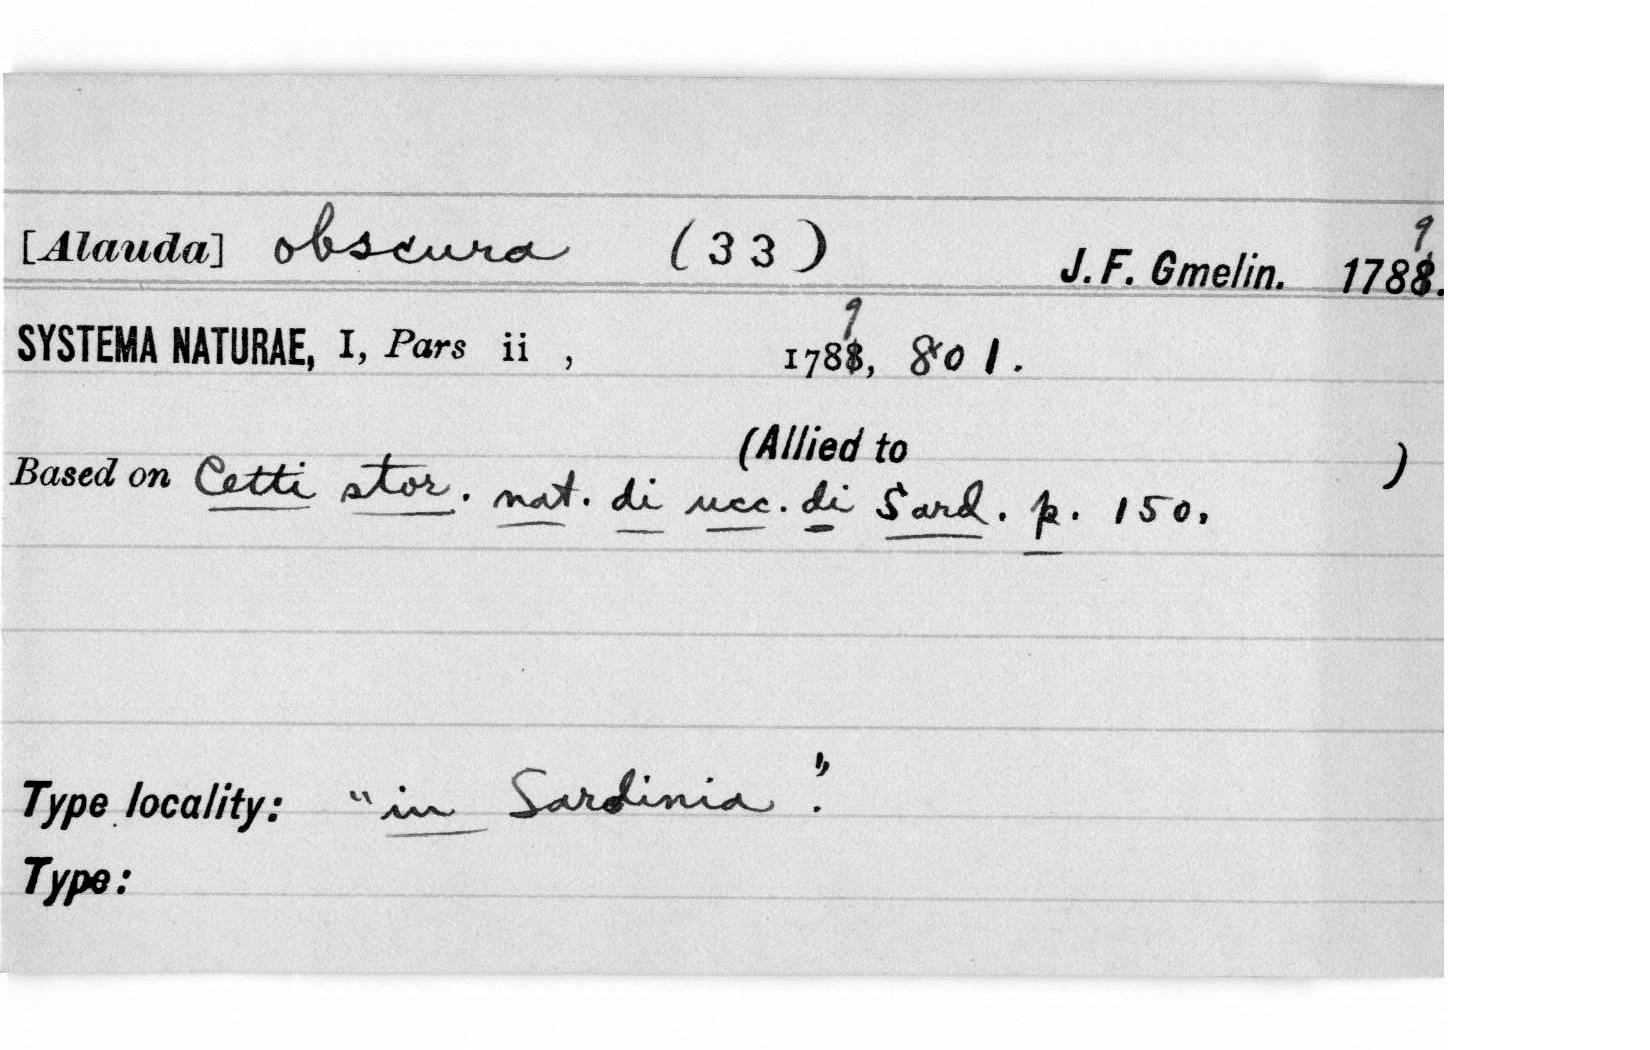 [Alauda] obscura (33) J. F. Gmelin. 1788. 9
SYSTEMA NATURAE, I, Pars ii , 1788, 9 801.
(Allied to )
Based on Cetti stor. nat. di ucc. di Sard. p. 150.
Type locality: "in Sardinia".
Type: